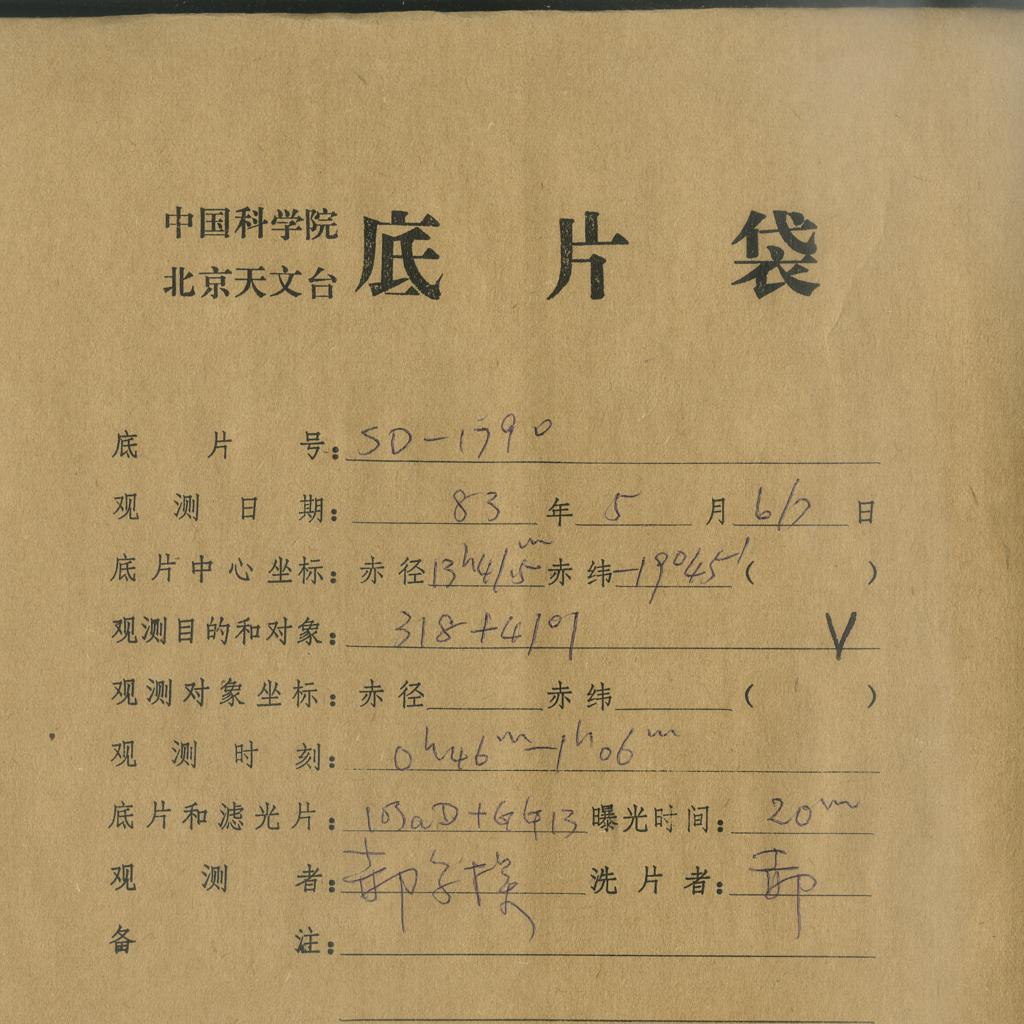 中国科学院
北京天文台
底片袋
底片号:SD-1790
观测日期:83年5月6/7日
底片中心坐标:赤径13h41.5m赤纬-19°45′( )
观测目的和对象:318+4101 V
观测对象坐标:赤径 赤纬 ( )
观测时刻:0h46m-1h06m
底片和滤光片:103aD+GG13 曝光时间:20m
观测者:郝 洗片者:郝
备注: